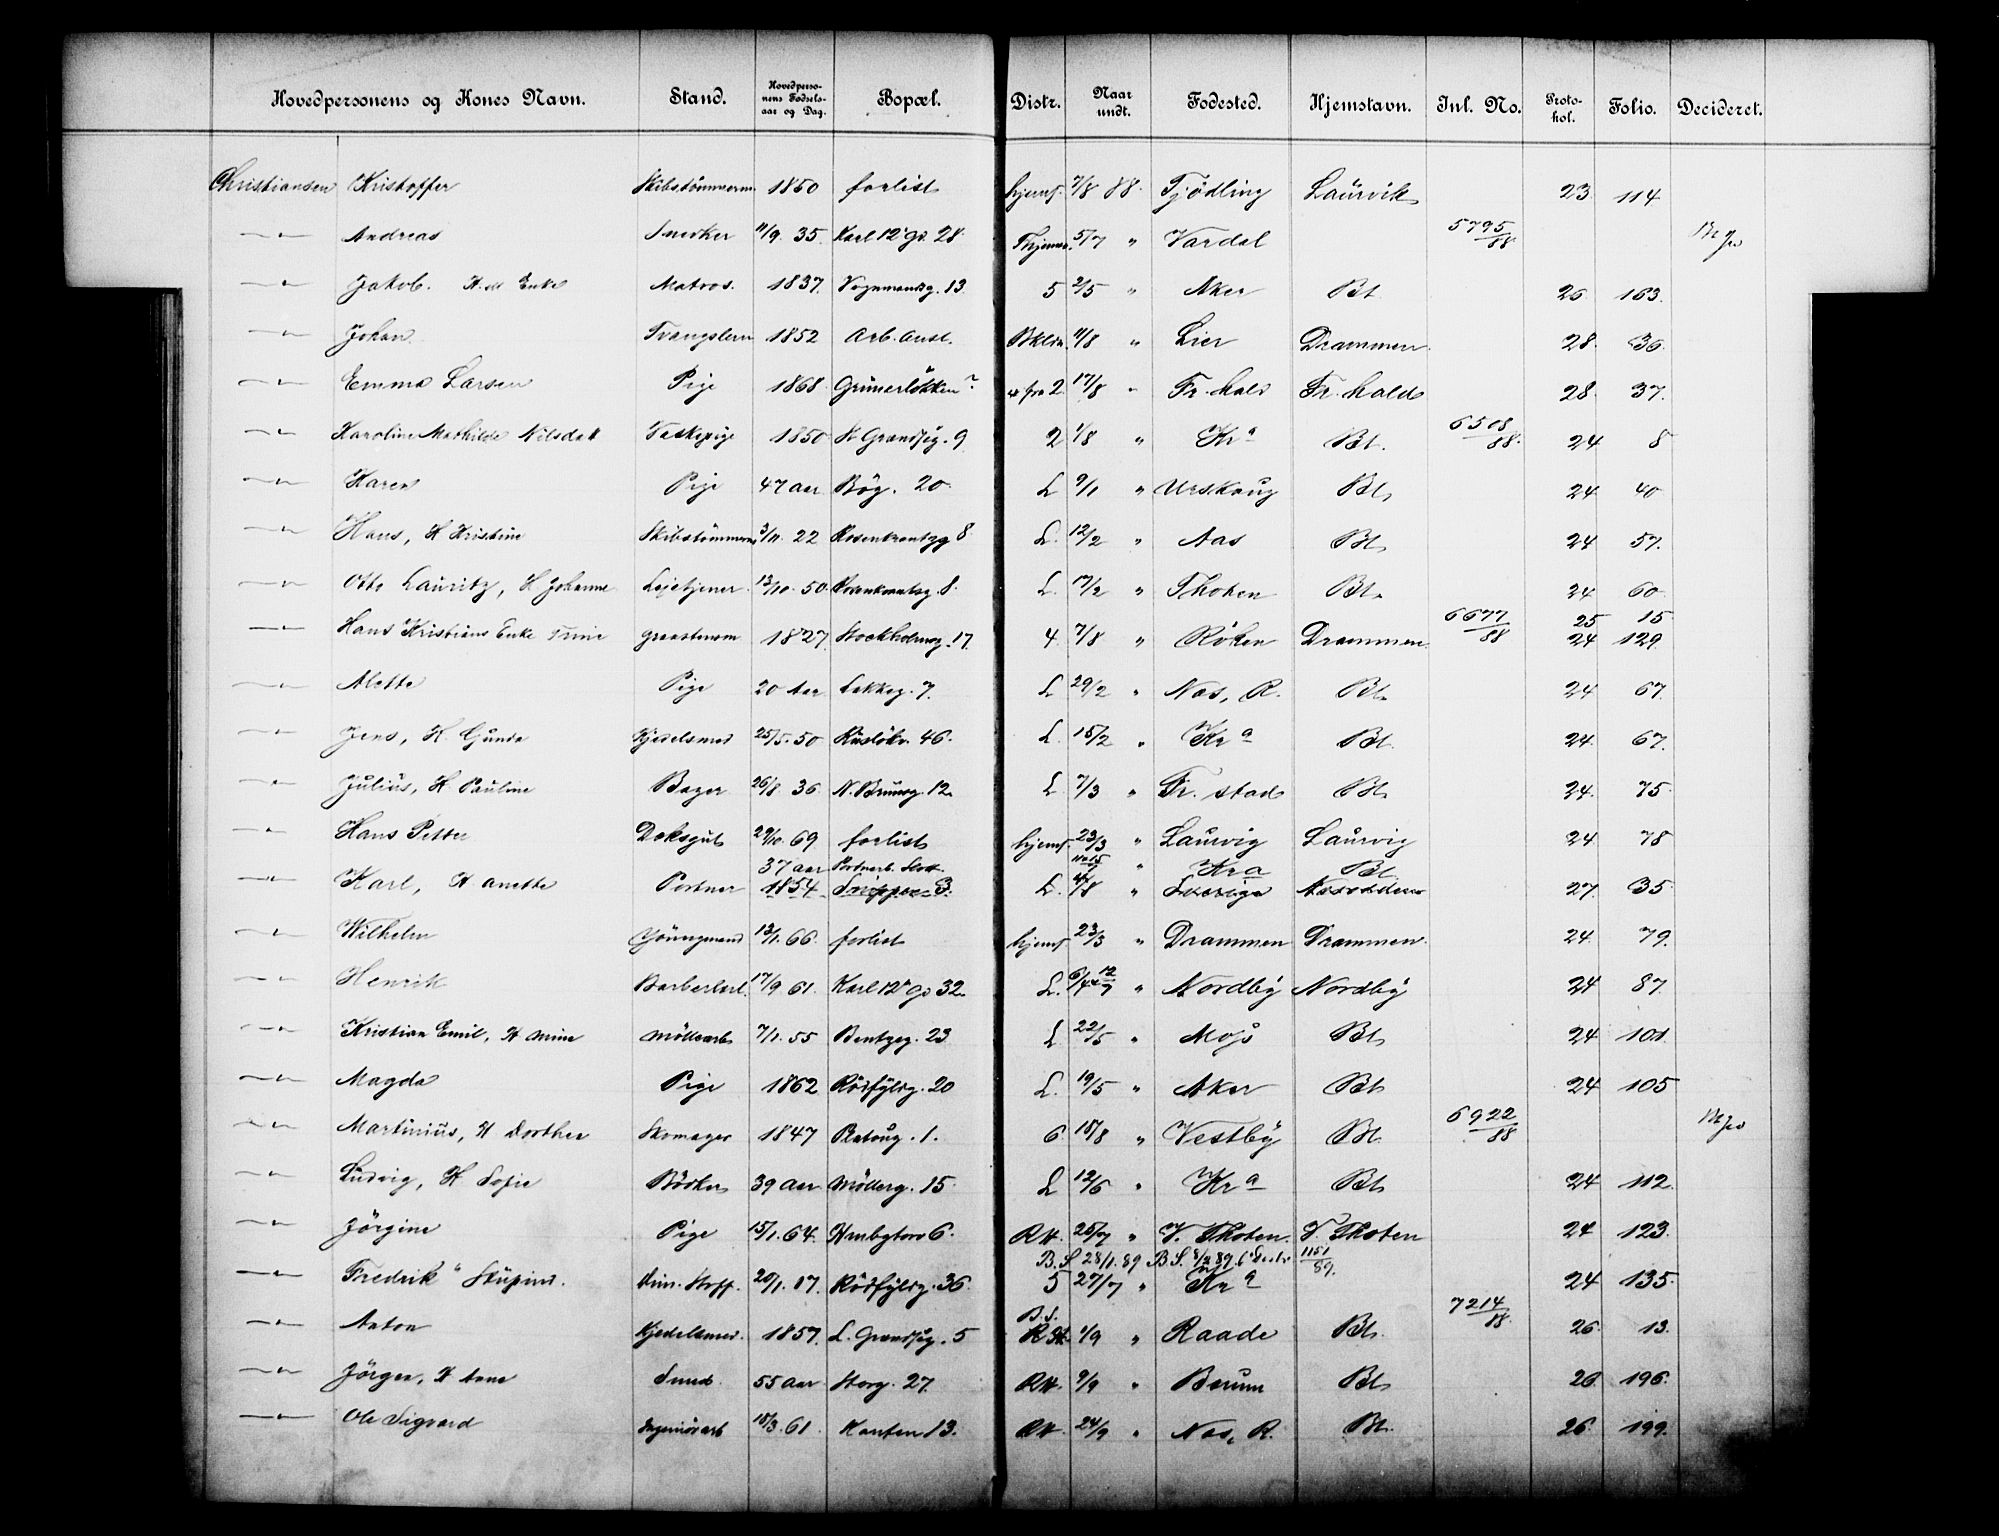 Hovedpersonens og Kones Navn. Stand. Hovedpersonens Fødsels-aar og Dag. Bopæl. Distr. Naar undt. Fødested. Hjemstavn. Inl. No. Protokol. Folio. Decideret.
Christiansen Kristoffer Skibstömmerm. 1850 forlist hjemf. 7/8 88. Tjødling Laurvik 23 114
—"— Andreas Snedker 11/9 35. Karl 12' gd. 28 5/7 " Vardal 5795/88
—"— Jakob. Enke Matros. 1837. Vognmandsg. 13 5 2/5 " Aker Bt 26 163.
—"— Johan Tvangslem 1852 Arb. anst. 11/8 " Lier Drammen 28. 36.
—"— Emma Larsen Pige 1868 Grünerløkken fra 2. 17/8 " Fr. hald Fr. hald 28. 37.
—"— Karoline Mathilde Nilsdatt Vaskepige 1850 N Grændsg. 9 2 1/8 " Kra Bt. 6508/88. 24 8
—"— Karen Pige 47 aar Bög. 20. L 9/1 " Urskoug Bt, 24 40
—"— Hans, H Kristine Skibstömmerm 3/11. 22 Rosenkrantzg 8 L. 12/2 " Aas Bt, 24 57.
—"— Otto Lauritz, H Johanne Leietjener. 13/10. 50. Rosenkrantsg. 8. L. 17/2 " Thoten Bt. 24 60.
—"— Hans Kristians Enke Trine graastensm 1827 Stockholmsg. 17. 4. 7/8 " Röken Drammen 6677/88 25 24 15 129.
—"— Alette Pige 20 Aar Lakkeg. 7. L 29/2 " Nas, R. Bt. 24 67.
—"— Jens, H. Gunda Kjedelsmed 25/5. 50 Rusløkv. 46. L. 15/2 " Kra Bt. 24. 67.
—"— Julius, H. Pauline Bager 26/8 36. N. Brunsg. 12. L 7/3 " Fr. stad Bt, 24. 75.
—"— Hans Petter Doksgut 29/10. 69 forlist hjemf. 23/3 " Laurvig Laurvig 24 78
37 aar Portnerb. Slott. " Kra Bt.
—"— Karl, H Anette Portner 1854 L. 4/8 " Sverige Nesodden 27. 35.
—"— Wilhelm Youngmand 13/1. 66. forlist hjemf. 23/3 " Drammen Drammen. 24. 79.
—"— Henrik Barberlærl. 17/9 61. Karl 12' gd 32. L. 6/4 12/7 " Nordby Nordby 24 87.
—"— Kristian Emil, H Mine Möllearb 7/1. 55 Bentzeg. 23 L 22/5 " Moss Bt, 24 101.
—"— Magda Pige 1862 Rödfyldg. 20 L. 19/5 " Aker Bt 24 105
—"— Martinius, H Dorthea Skomager 1847 Platoug. 1. 6. 15/8 " Vestby Bt. 6922/88
—"— Ludvig, H Sofie Bödker 39 aar Möllerg. 15. L 12/6 " Kra Bt 24 112.
—"— Jörgine Pige 15/1. 64. 6. RH. 25/7 " V. Thoten. V. Thoten 24 123.
B.S. 28/1. 89 B.S. 8/2 89. 6 Distr 1151/89.
—"— Fredrik " Stüpind. Dim. Stoff. 20/1. 17. Rödfyldg. 36. 5 27/7 " Kra 24 135.
—"— Anton Kjedelsmed. 1857. L. Grændsg. 5 B.S. R St. 1/9 " Raade Bt. 7214/88 26. 13.
—"— Jörgen, H Anne Smed. 55 aar Storg. 27. RH. 9/9 " Berum Bt 26. 196.
—"— Ole Sigvard Ingeniörarb 15/3. 61. Kanten 13. RH. 24/9 " Nas, R. Bt. 26. 199.